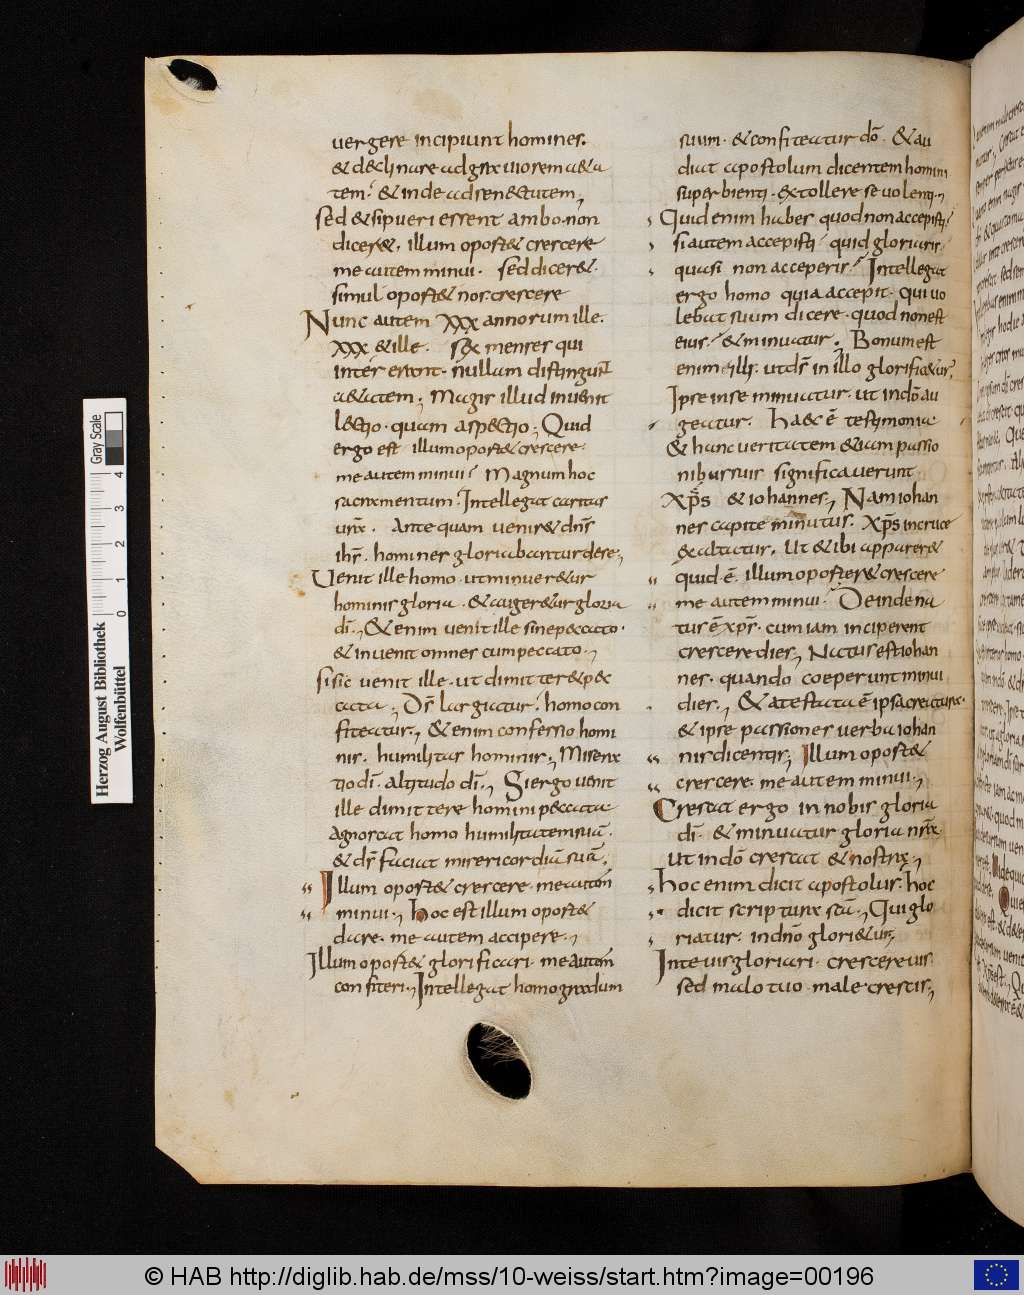 uergere incipiunt homines.
& declinare ad grauiorem aeta
tem. & inde ad senectutem,
sed & si pueri essent ambo. non
diceret. illum oportet crescere
me autem minui. sed diceret.
simul oportet nos crescere
Nunc autem xxx annorum ille.
xxx & ille. sex menses qui
inter erant. nullam distingunt
aetatem; Magis illud inuenit
lectio. quam aspectio; Quid
ergo est illum oportet crescere.
me autem minui? Magnum hoc
sacramentum. Intellegat caritas
ura. Ante quam ueniret dns
ihs. homines gloriabantur de se;
Uenit ille homo. ut minueretur
hominis gloria. & augeretur gloria
di; Etenim uenit ille sine peccato.
& inuenit omnes cum peccato;
si sic uenit ille. ut dimitteret pec
cata; Ds largiatur. homo con
fiteatur; Etenim confessio homi
nis. humilitas hominis; Misera
tio di. altitudo di; Si ergo uenit
ille dimittere homini peccata
agnoscat homo humilitatem suā.
& ds faciat misericordiā suā;
Illum oportet crescere. me autem
minui; hoc est illum oportet
dare. me autem accipere;
Illum oportet glorificari. me autem
confiteri; Intellegat homo gradum
suum. & confiteatur dō. & au
diat apostolum dicentem homini
superbienti. & extollere se uolenti;
Quid enim habes quod non accepisti?
si autem accepisti? quid gloriaris
quasi non acceperis? Intellegat
ergo homo quia accepit. qui uo
lebat suum dicere. quod non est
eius. & minuatur; Bonum est
enim illi. ut ds in illo glorificetur;
Ipse in se minuatur. ut in dō au
geatur. Haec ē testimonia
& hanc ueritatem etiam passio
nibus suis significauerunt
xps & iohannes; Nam iohan
nes capite minutus. xps in cruce
exaltatur. Ut & ibi appareret
quid ē. illum oportere crescere
me autem minui. Deinde na
tus ē xps. cum iam inciperent
crescere dies; Natus est iohan
nes. quando coeperunt minui
dies; & atestata ē ipsa creatura.
& ipse passiones uerba iohan
nis dicentis; Illum oportet
crescere. me autem minui;
Crescat ergo in nobis gloria
di. & minuatur gloria nra.
Ut in dō crescat & nostra;
Hoc enim dicit apostolus. hoc
dicit scriptura sca; Qui glo
riatur. in dno glorietur;
In te uis gloriari. crescere uis.
sed malo tuo male crescis;
Herzog August Bibliothek
Wolfenbüttel
Gray Scale
0 1 2 3 4
© HAB http://diglib.hab.de/mss/10-weiss/start.htm?image=00196